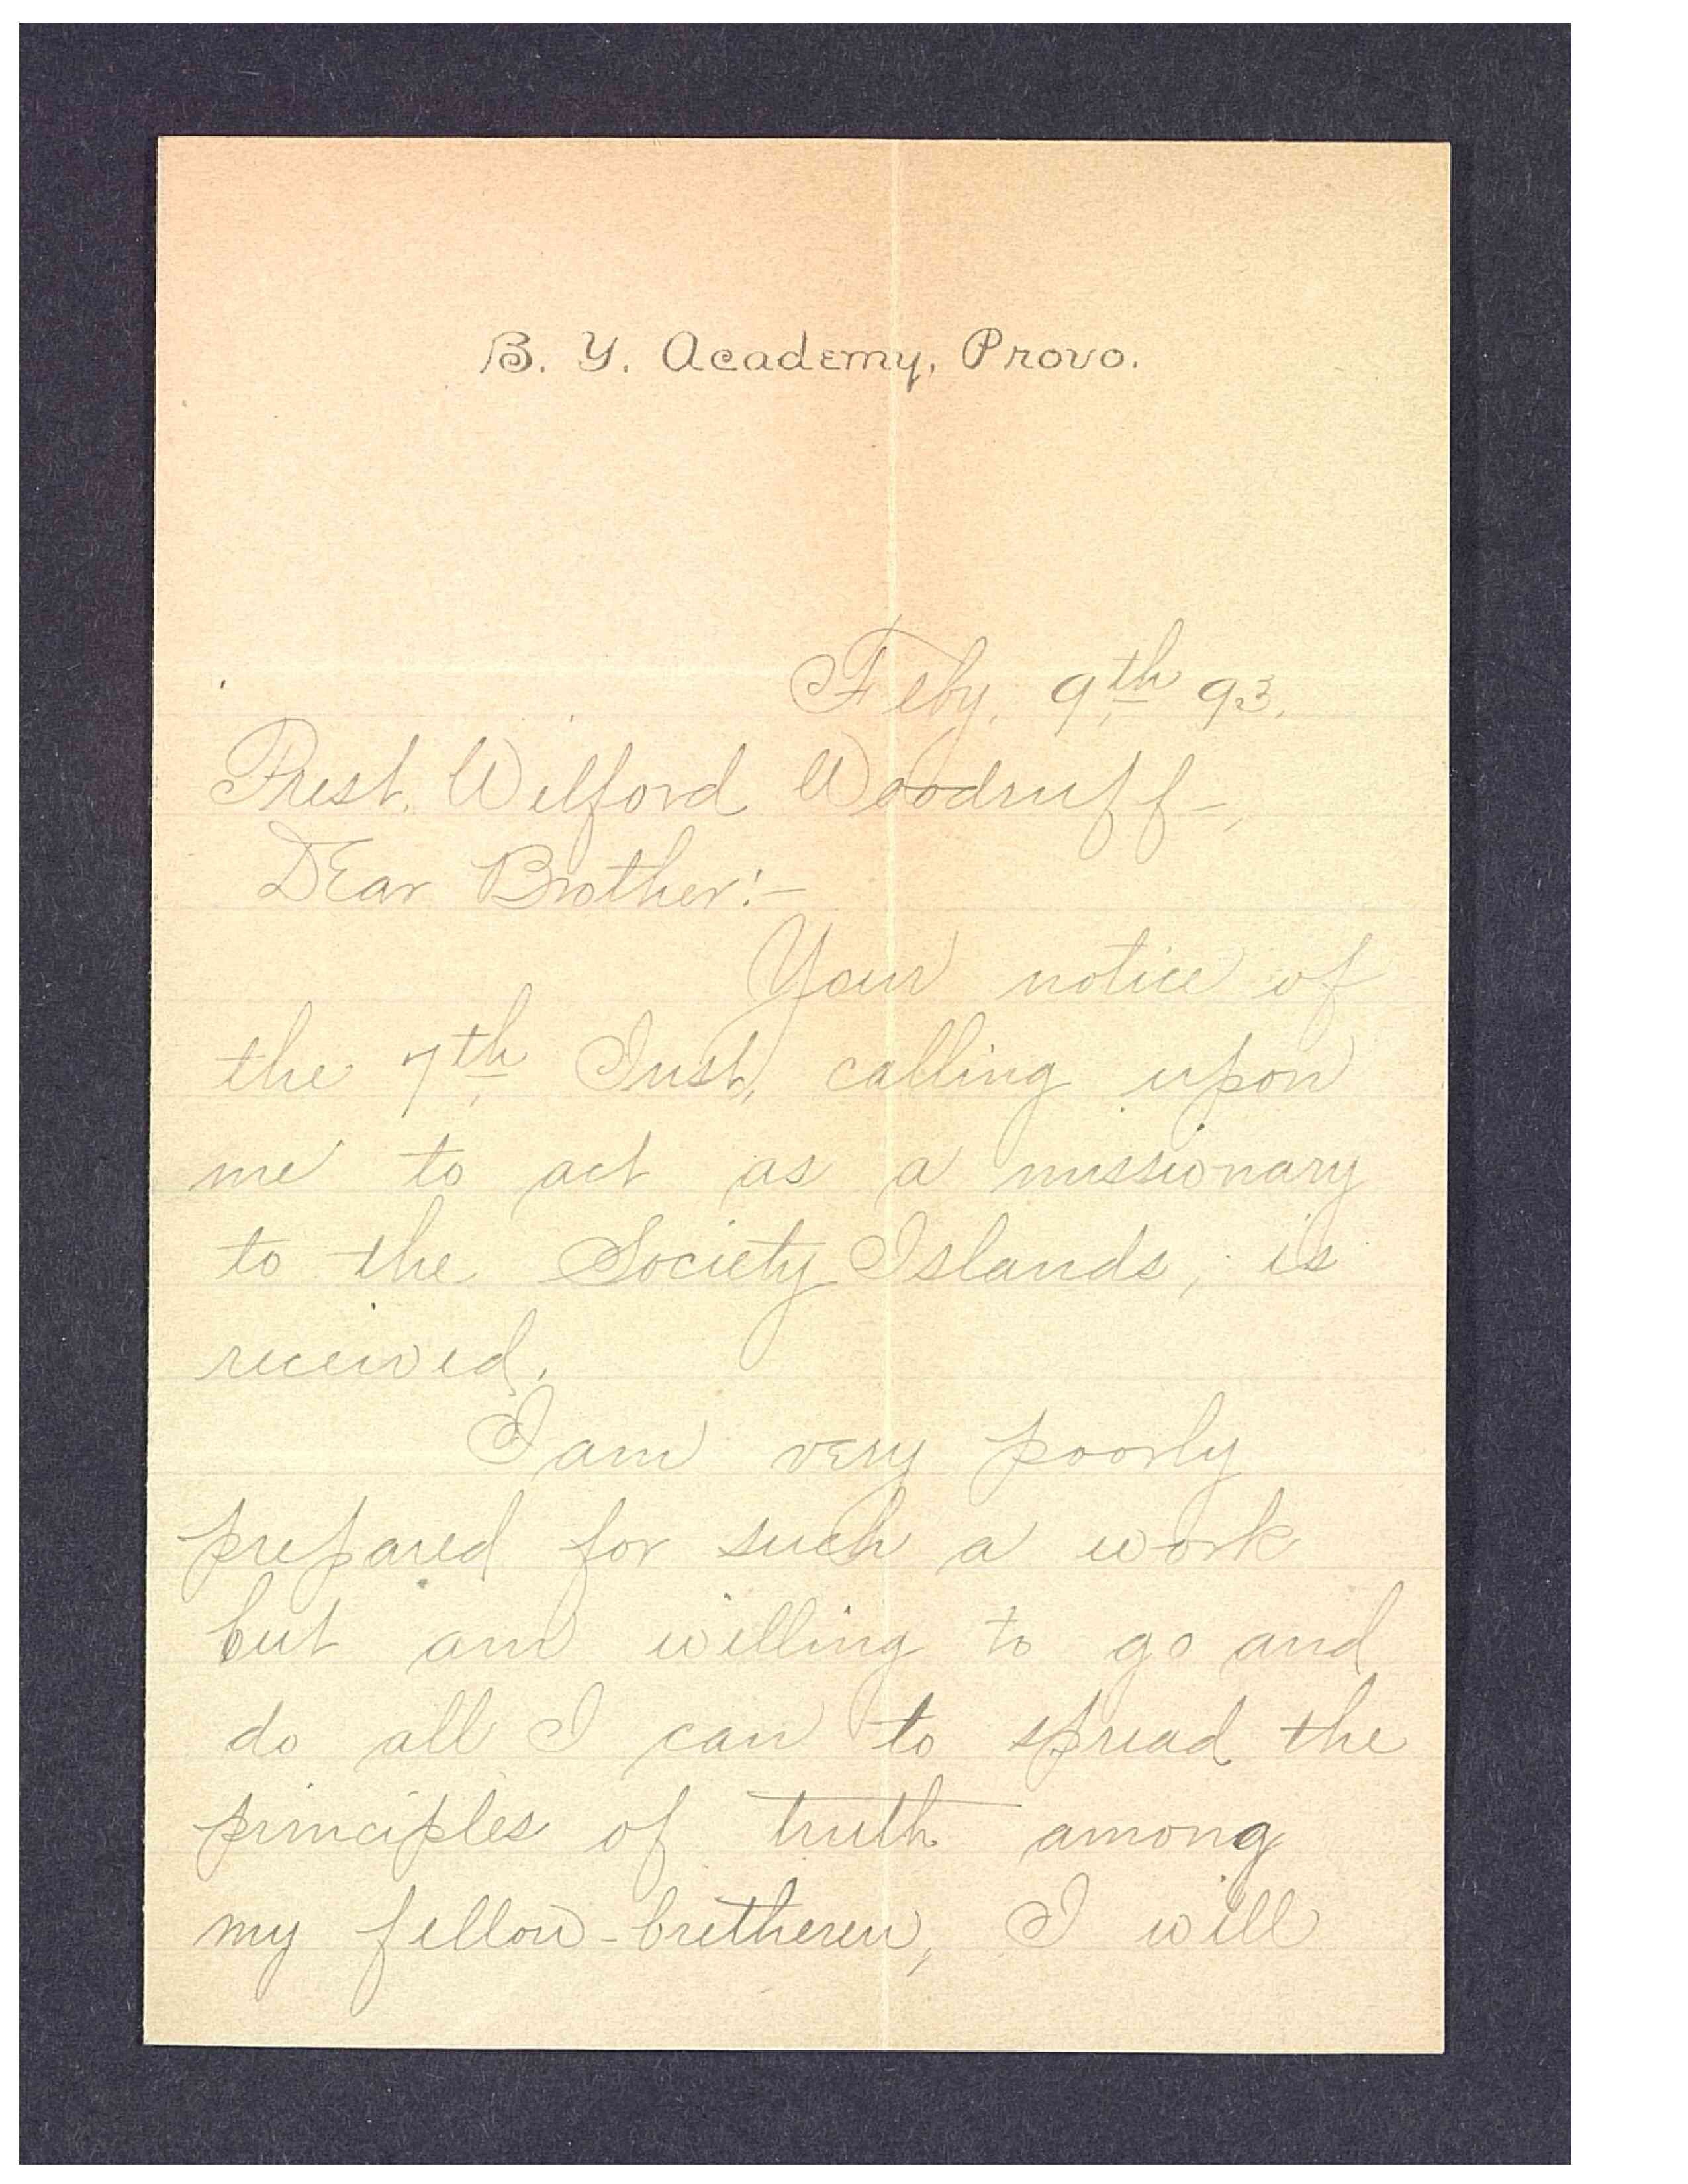 B. Y. Academy, Provo.
Feby. 9th 93.
Prest. Wilford Woodruff-,
Dear Brother:-
Your notice of
the 7th Inst, calling upon
me to act as a missionary
to the Society Islands, is
received.
I am very poorly
prepared for such a work
but am willing to go and
do all I can to spread the
principles of truth among
my fellow-bretheren, I will